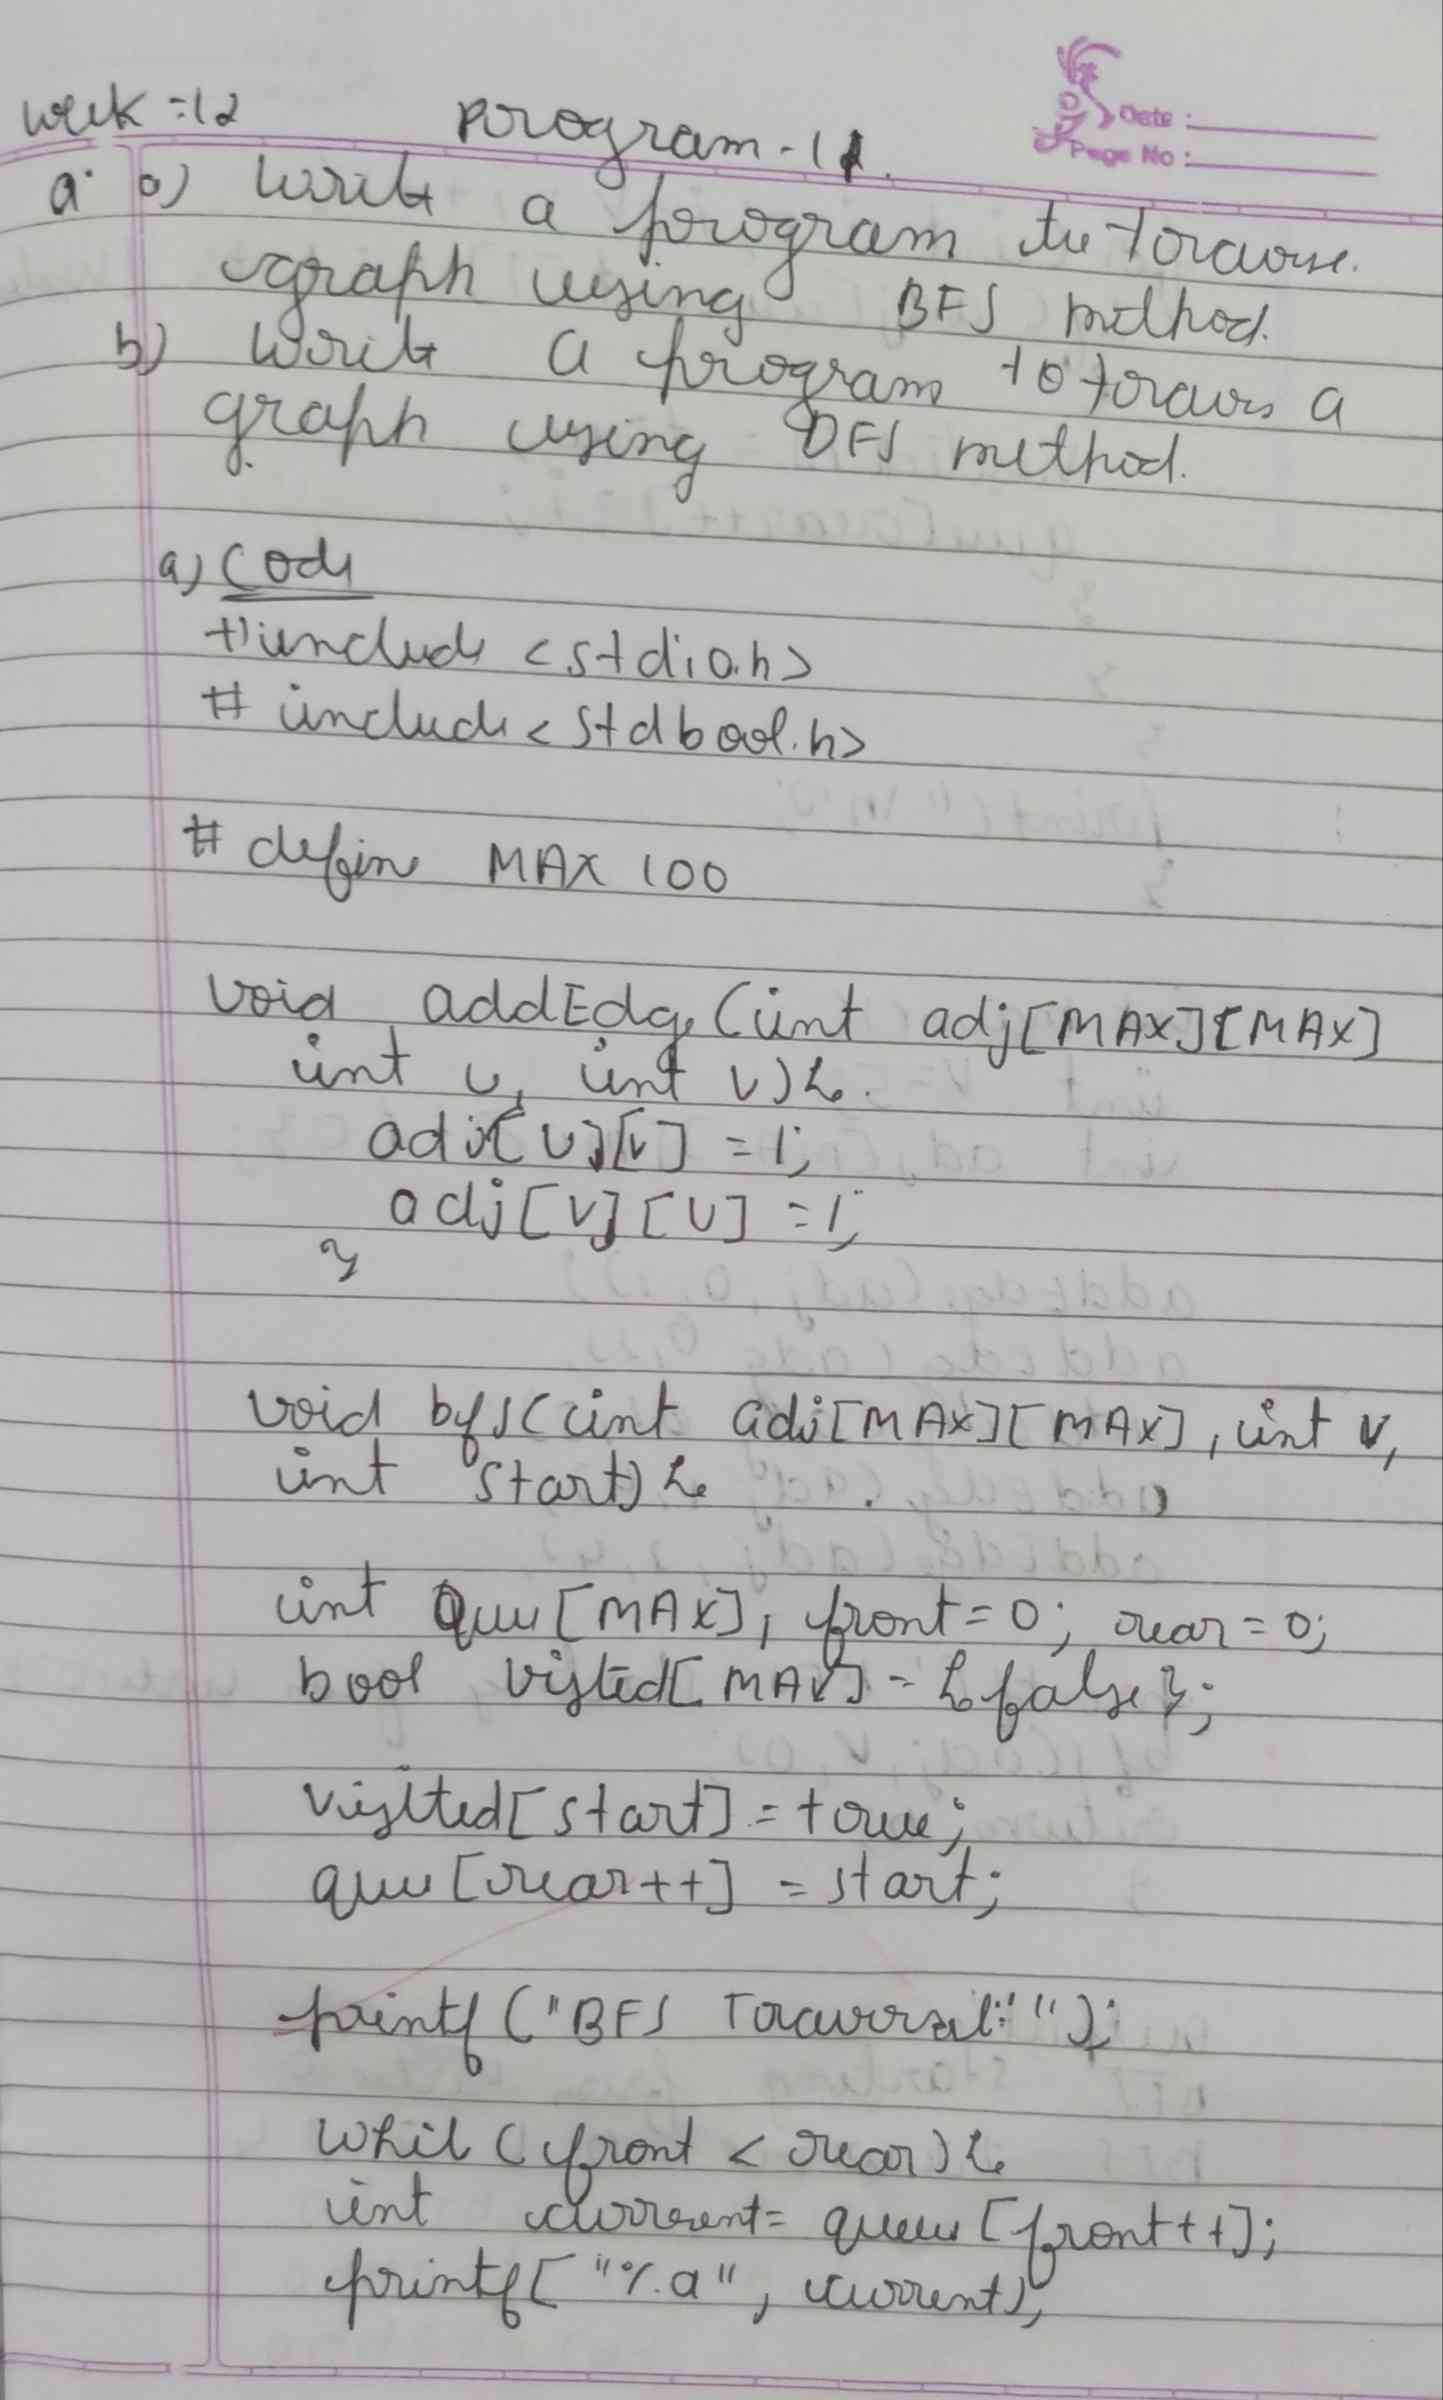 Week = 12 Program - 11.
Date :
Page No :
Q. a) Write a program to traverse
graph using BFS method.
b) Write a program to travers a
graph using DFS method.
a) Code
#include <stdio.h>
# include <stdbool.h>
# define MAX 100
void addEdge (int adj[MAX][MAX]
int u, int v) {
adj[u][v] = 1;
adj[v][u] = 1;
}
void bfs (int adj[MAX][MAX], int v,
int start) {
int Queue [MAX], front = 0; rear = 0;
bool visited[MAX] = {false};
visited[start] = true;
queue [rear++] = start;
printf ("BFS Traversal:");
while (front < rear) {
int current = queue [front++];
printf["%d", current);